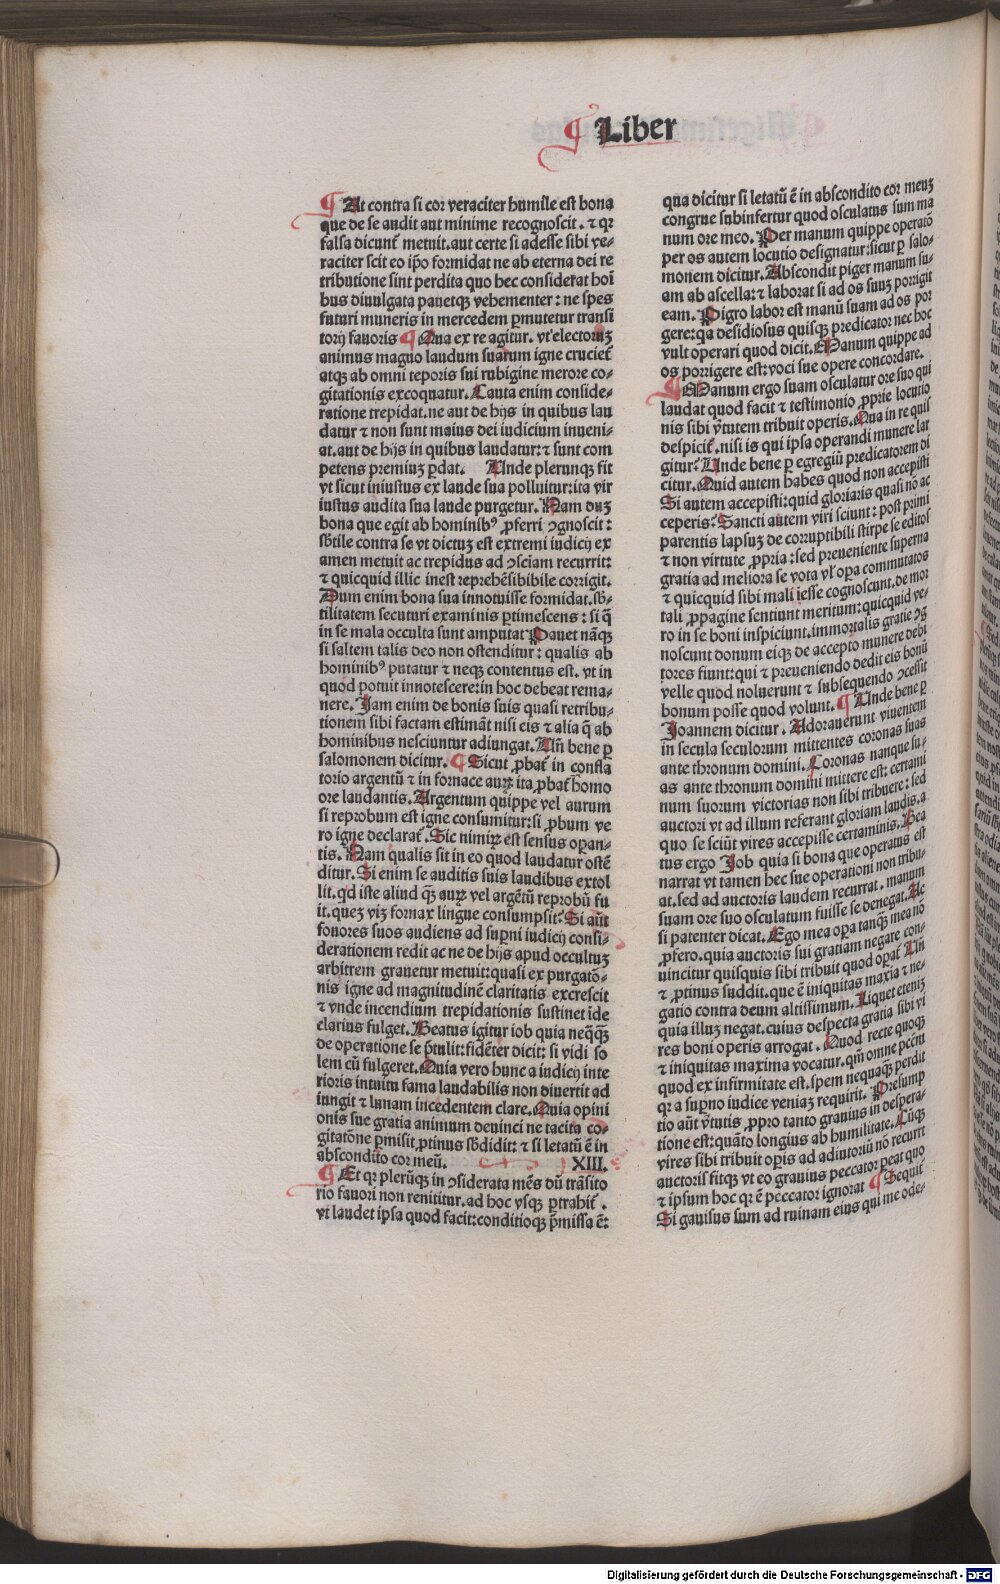 ¶ Liber
¶ At contra si cor veraciter humile est bona
que de se audit aut minime recognoscit . ⁊ qꝛ
falsa dicunt̄ metuit. aut certe si adesse sibi ve-
raciter scit eo ip̄o formidat ne ab eterna dei re
tributione sint perdita quo hec considerat hoī
bus diuulgata pauetqꝫ vehementer : ne spes
futuri muneris in mercedem ꝑmutetur transi
torij fauoris ¶ Qua ex re agitur. vt electoruꝫ
animus magno laudum suarum igne crucieť
atqꝫ ab omni teporis sui rubigine merore co-
gitationis excoquatur. Cauta enim conside-
ratione trepidat. ne aut de hijs in quibus lau
datur ⁊ non sunt maius dei iudicium inueni-
at. aut de hijs in quibus laudatur: ⁊ sunt com
petens premiuꝫ ꝑdat. Unde plerunqꝫ fit
vt sicut iniustus ex laude sua polluitur: ita vir
iustus audita sua laude purgetur. Nam duꝫ
bona que egit ab hominibꝰ ꝓferri ꝯgnoscit :
sb̄tile contra se vt dictuꝫ est extremi iudicij ex
amen metuit ac trepidus ad ꝯsciam recurrit:
⁊ quicquid illic inest reprehēsibile corrigit.
Dum enim bona sua innotuisse formidat. sb̄-
tilitatem secuturi examinis ꝑtimescens : si q̄
in se mala occulta sunt amputat Pauet nāqꝫ
si saltem talis deo non ostenditur : qualis ab
hominibꝰ putatur ⁊ neqꝫ contentus est. vt in
quod potuit innotescere: in hoc debeat rema-
nere. Jam enim de bonis suis quasi retribu-
tionem sibi factam estimāt nisi eis ⁊ alia q̄ ab
hominibus nesciuntur adiungat. Un̄ bene ꝑ
salomonem dicitur. ¶ Sicut ꝓbať in confla
torio argentū ⁊ in fornace auꝝ ita ꝓbať homo
ore laudantis. Argentum quippe vel aurum
si reprobum est igne consumitur: si ꝓbum ve
ro igne declarať. Sic nimiꝝ est sensus oꝑan-
tis. Nam qualis sit in eo quod laudatur ostē
ditur. Si enim se auditis suis laudibus extol
lit. qd iste aliud q̄ꝫ auꝝ vel argētū reprobū fu
it. queꝫ viꝫ fornax lingue consumpsit? Si aūt
fouores suos audiens ad suꝑni iudicij consi-
derationem redit ac ne de hijs apud occultuꝫ
arbitrem grauetur metuit: quasi ex purgatō-
nis igne ad magnitudinē claritatis excrescit
⁊ vnde incendium trepidationis sustinet īde
clarius fulget. Beatus igitur iob quia neqꝫqꝫ
de operatione se p̄tulit: fidēter dicit: si vidi so
lem cū fulgeret. Quia vero hunc a iudicij inte
rioris intuitu fama laudabilis non diuertit ad
iungit ⁊ lunam incedentem clare. Quia opini
onis sue gratia animum deuinci ne tacita co-
gitatōne ꝑmisit ꝓtinus sb̄didit: ⁊ si letatū ē in
abscondito cor meū. XIII.
¶ Et qꝛ plerūqꝫ in ꝯsiderata mēs dū trāsito
rio fauori non renititur. ad hoc vsqꝫ ꝑtrahiť .
vt laudet ipsa quod facit: conditioqꝫ p̄missa ē:
qua dicitur si letatū ē in abscondito cor meuꝫ
congrue subinfertur quod osculatus sum ma
num ore meo. Per manum quippe operatō
per os autem locutio designatur: sicut ꝑ salo-
monem dicitur. Abscondit piger manum su-
am ab ascella: ⁊ laborat si ad os suuꝫ porrigit
eam. Pigro labor est manū suam ad os por
gere: qa desidiosus quisqꝫ predicator nec hoc
vult operari quod dicit. Manum quippe ad
os porrigere est: voci sue opere concordare.
¶ Manum ergo suam osculatur ore suo qui
laudat quod facit ⁊ testimonio ꝓprie locutio
nis sibi v̄tutem tribuit operis. Qua in re quis
despiciť. nisi is qui ipsa operandi munere lar
gitur? Unde bene ꝑ egregiū predicatorem di
citur. Quid autem habes quod non accepisti
Si autem accepisti: quid gloriaris quasi nō ac
ceperis? Sancti autem viri sciunt : post primi
parentis lapsuꝫ de corruptibili stirpe se editos
⁊ non virtute ꝓpria : sed preueniente superna
gratia ad meliora se vota vl̓ oꝑa commutatos
⁊ quicquid sibi mali iesse cognoscunt. de mor
tali ꝓpagine sentiunt meritum: quicquid ve-
ro in se boni inspiciunt. immortalis gratie ꝯg
noscunt donum eiqꝫ de accepto munere debi
tores fiunt: qui ⁊ preueniendo dedit eis bonū
velle quod noluerunt ⁊ subsequendo ꝯcessit
bonum posse quod volunt. ¶ Unde bene ꝑ
Joannem dicitur . Adorauerunt viuentem
in secula seculorum mittentes coronas suas
ante thronum domini. Coronas nanque su-
as ante thronum domini mittere est: certami
num suorum victorias non sibi tribuere : sed
auctori vt ad illum referant gloriam laudis. a
quo se sciūt vires accepisse certaminis. Bea
tus ergo Job quia si bona que operatus est
narrat vt tamen hec sue operationi non tribu-
at. sed ad auctoris laudem recurrat. manum
suam ore suo osculatum fuisse se denegat. Ac
si patenter dicat. Ego mea oꝑa tanqꝫ mea nō
ꝓfero. quia auctoris sui gratiam negare con-
uincitur quisquis sibi tribuit quod oꝑať. Un̄
⁊ ꝓtinus suddit. que ē iniquitas maxīa ⁊ ne-
gatio contra deum altissimum. Liquet eteniꝫ
quia illuꝫ negat. cuius despecta gratia sibi vi
res boni operis arrogat . Quod recte quoqꝫ
⁊ iniquitas maxima vocatur. qm̄ omne pcc̄m
quod ex infirmitate est. spem nequaqꝫ perdit
qꝛ a suꝑno iudice veniaꝫ requirit. Presump
tio aūt v̄tutis ꝓpro tanto grauius in despera-
tione est: quāto longius ab humilitate. Cūqꝫ
vires sibi tribuit oꝑis ad adiutoriū nō recurrit
auctoris fitqꝫ vt eo grauius peccator peat quo
⁊ ipsum hoc qꝛ ē peccator ignorat ¶ Sequit̄
Si gauisus sum ad ruinam eius qui me ode-
Digitalisierung gefördert durch die Deutsche Forschungsgemeinschaft - DFG